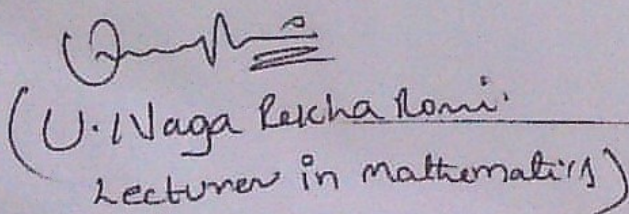 (U. Naga Rekha Rani.
Lecturer in mathematics)